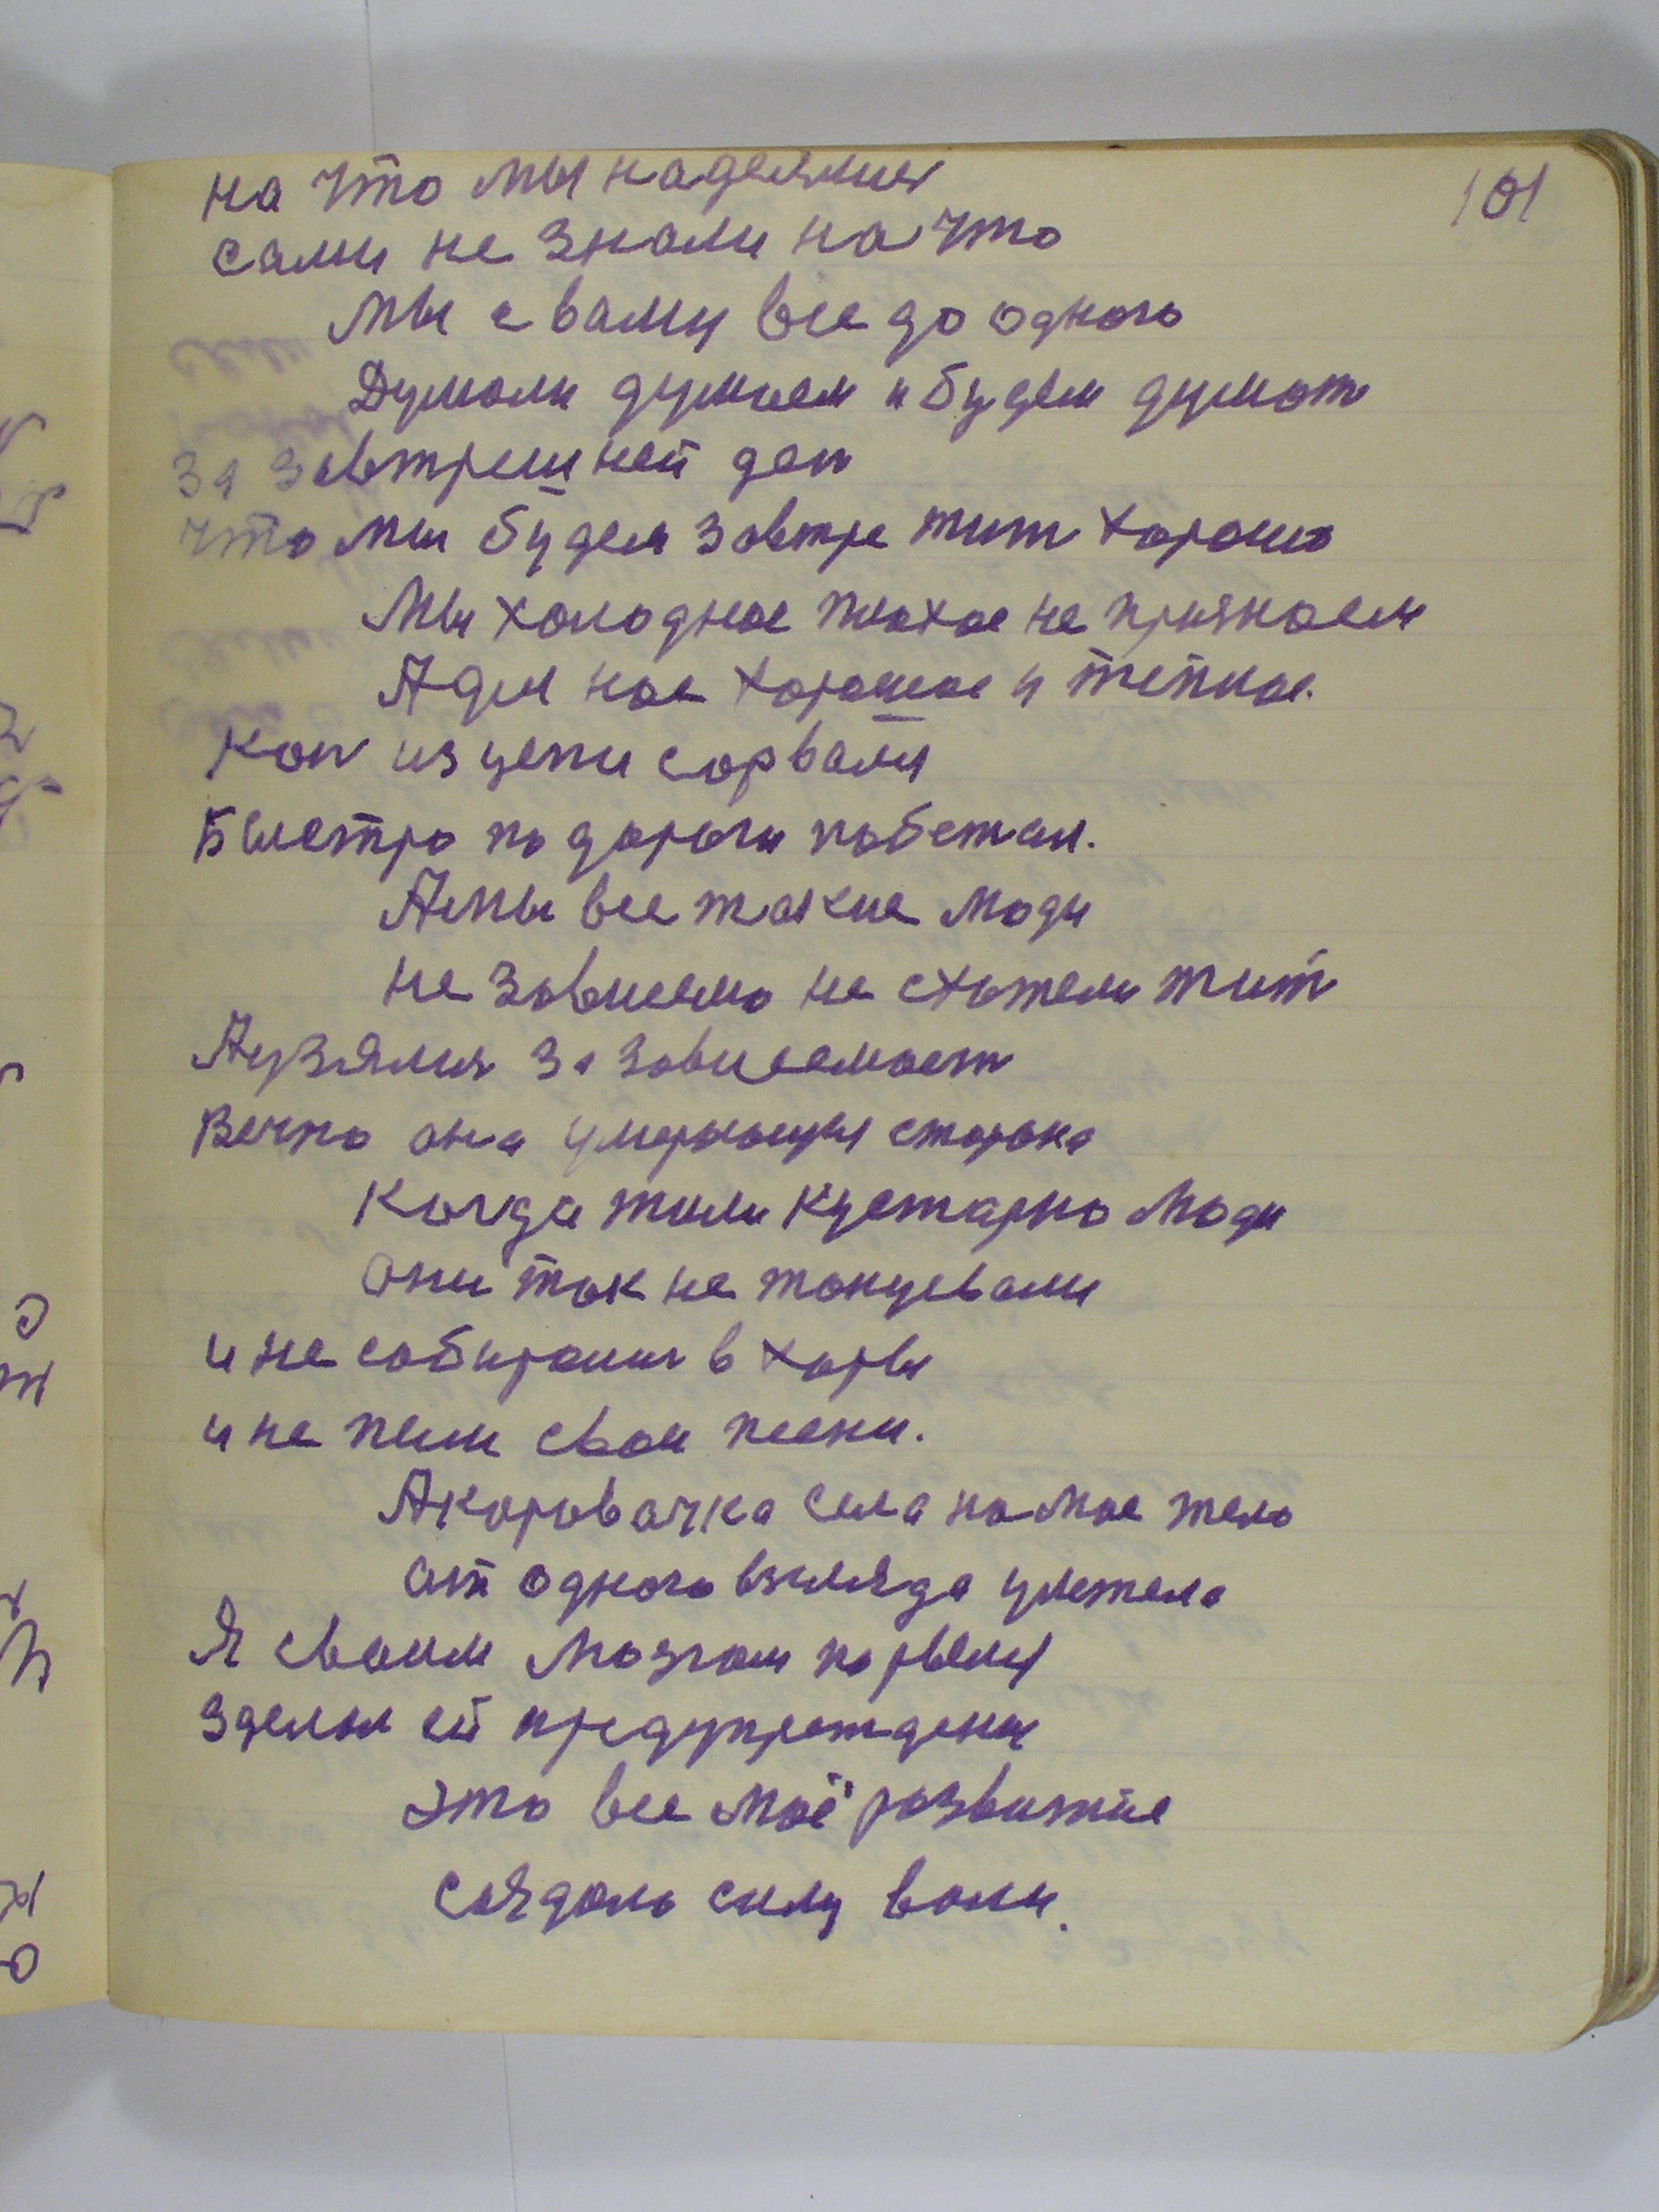 101
на что мы надеялися
сами не знали на что
мы с вами все до одного
Думали думаем и будем думат
за завтрешней ден
что мы будем завтре жит хорошо
Мы холодное плохое не признаем
А дле нас хорошое и теплое.
кон из цепи сорвалня
Быстро по дороги побежал.
А мы все такие люди
не зависемо не схотели жит
А узялися за зависемост
Вечно она умерающея сторона
Когда жили кустарно люди
они так не танцевали
и не собиралис в хоры
и не пели свои песни.
А коровачка села на мое тело
от одного взгляда улетела
Я своим мозгом
зделал ей предупреждения
это все моё развитие
создало силу воли.